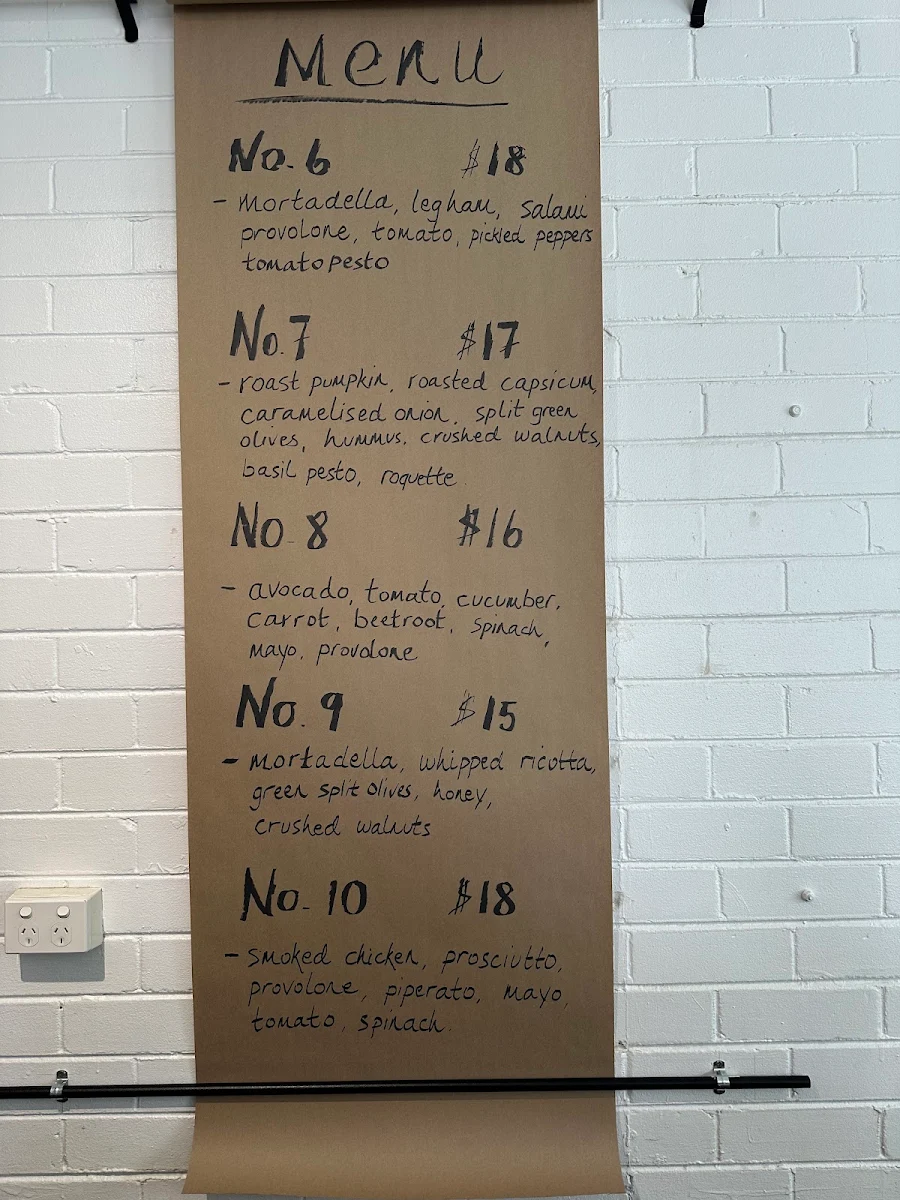 Menu
No. 6 $18
- mortadella, legham, salami
provolone, tomato, pickled peppers
tomato pesto
No. 7 $17
- roast pumpkin, roasted capsicum,
caramelised onion, split green
olives, hummus, crushed walnuts,
basil pesto, roquette
No. 8 $16
- avocado, tomato, cucumber,
carrot, beetroot, spinach,
mayo, provolone
No. 9 $15
- mortadella, whipped ricotta,
green split olives, honey,
crushed walnuts
No. 10 $18
- smoked chicken, prosciutto,
provolone, piperato, mayo,
tomato, spinach.